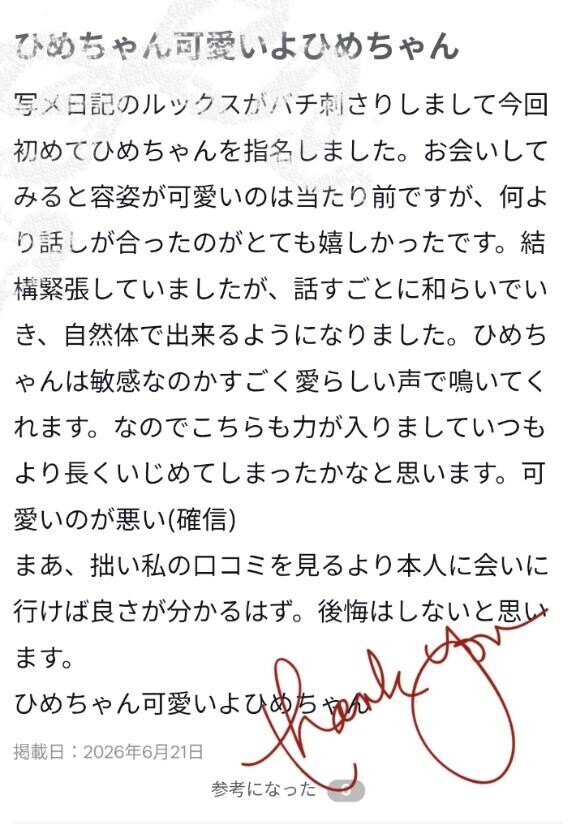 ひめちゃん可愛いよひめちゃん
写メ日記のルックスがバチ刺さりしまして今回
初めてひめちゃんを指名しました。お会いして
みると容姿が可愛いのは当たり前ですが、何よ
り話しが合ったのがとても嬉しかったです。結
構緊張していましたが、話すごとに和らいでい
き、自然体で出来るようになりました。ひめち
ゃんは敏感なのかすごく愛らしい声で鳴いてく
れます。なのでこちらも力が入りましていつも
より長くいじめてしまったかなと思います。可
愛いのが悪い(確信)
まあ、拙い私の口コミを見るより本人に会いに
行けば良さが分かるはず。後悔はしないと思い
ます。
ひめちゃん可愛いよひめちゃん
thank you
掲載日：2026年6月21日
参考になった